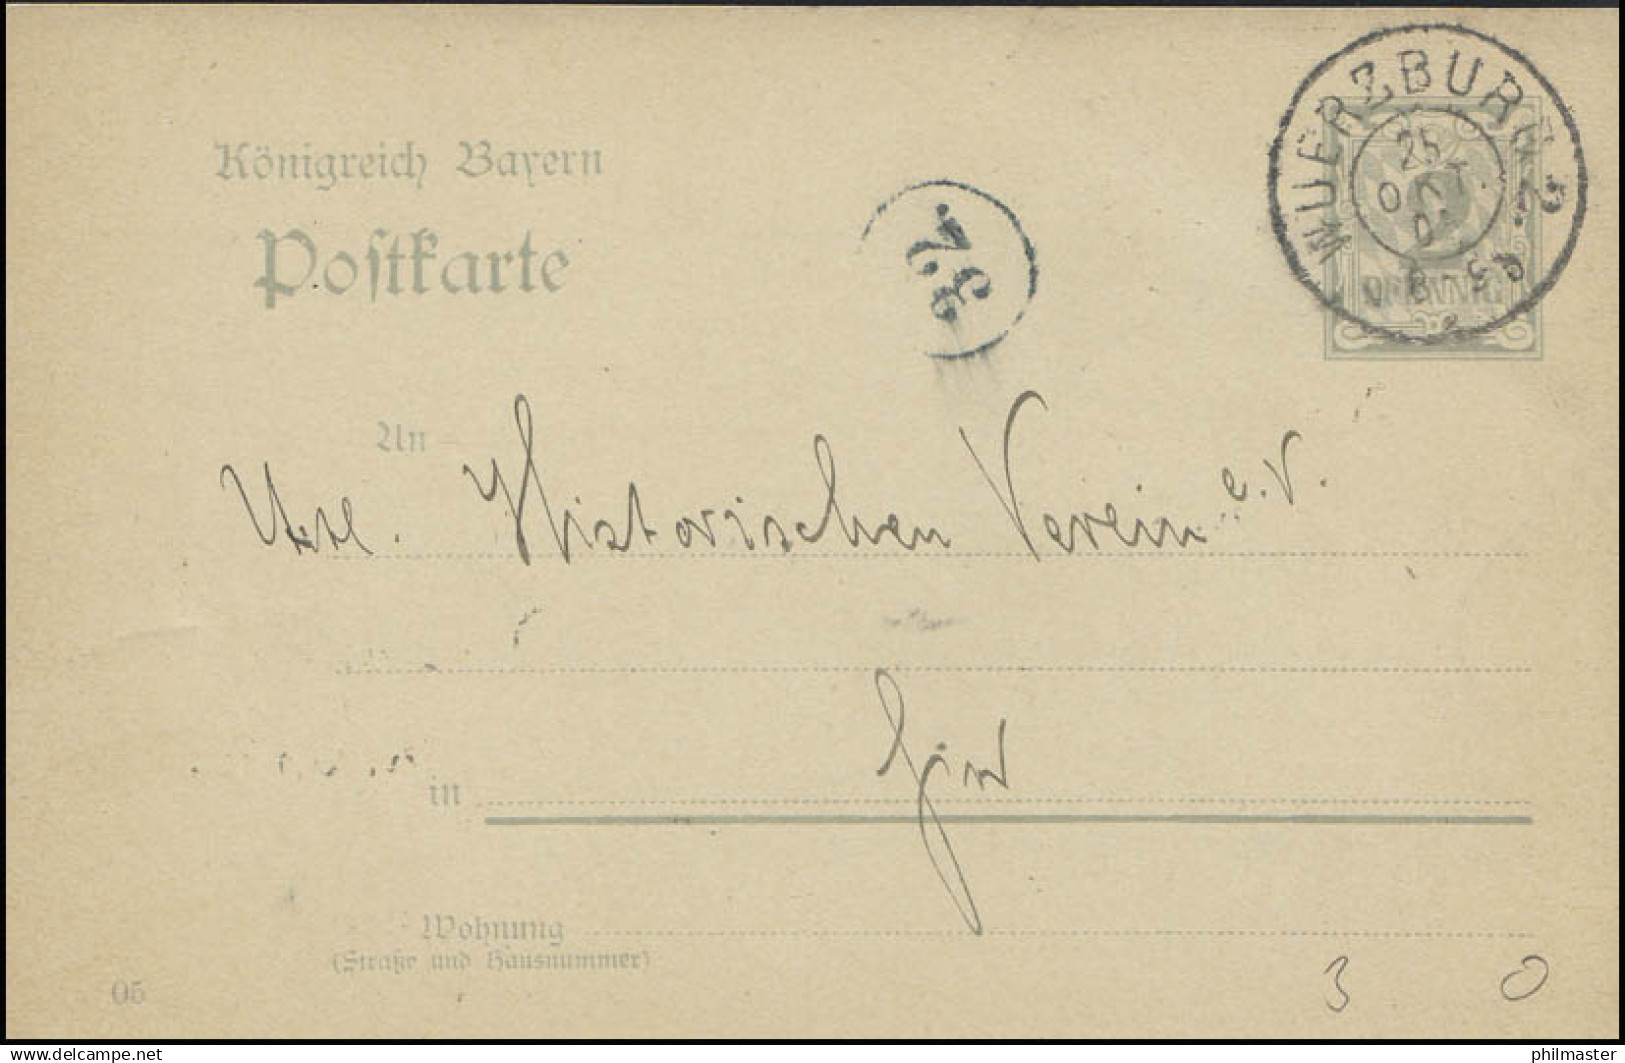 Königreich Bayern
Postkarte
WUERZBURG 2.
25
OCT.
PFENNIG
32
An
Historischen Verein e. V.
in
hier
Wohnung
(Straße und Hausnummer)
05
3 0
delcampe.net
philmaster